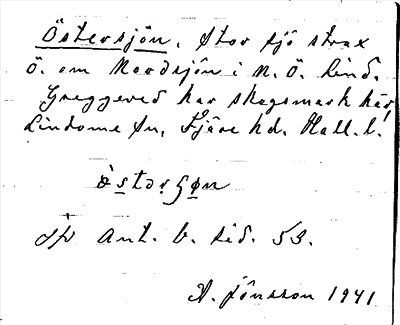 Östersjön. Stor sjö strax
ö. om Nordsjön i n. ö. Lind.
Greggered har skogsmark här,
Lindome sn, Fjäre hd. Hall. l.
Ant. b. sid. 53.
A. Jönsson 1941